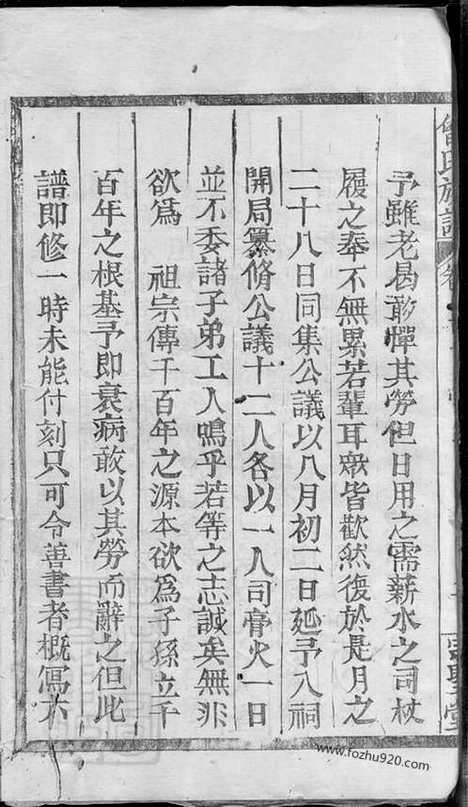 曾氏族譜
予雖老曷敢憚其勞但日用之需薪水之司杖
履之奉不無累若輩耳眾皆歡然復於是月之
二十八日同集公議以八月初二日延予入祠
開局纂脩公議十二人各以一人司膏火一日
並不委諸子弟工人嗚乎若等之志誠矣無非
欲爲　祖宗傳千百年之源本欲爲子孫立千
百年之根基予即衰病敢以其勞而辭之但此
譜即修一時未能付刻只可令善書者概寫六
www.fozhu920.com